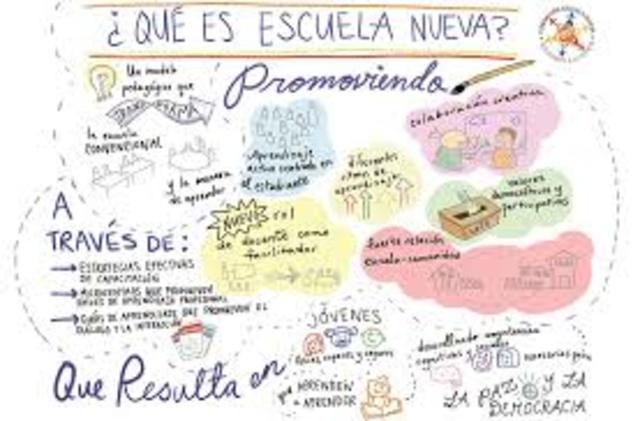 ¿QUÉ ES ESCUELA NUEVA?
Un modelo
pedagógico que
TRANSFORMA
la escuela
CONVENCIONAL
y la manera
de aprender
Promoviendo
Aprendizaje
activo centrado en
el estudiante
diferentes
ritmos de
aprendizaje
colaboración creativa
valores
democráticos y
participativos
VOTE
NUEVO rol
de docente como
facilitador
fuerte relación
escuela-comunidad
A
TRAVÉS DE:
ESTRATEGIAS EFECTIVAS
DE CAPACITACIÓN
QUE PROMUEVEN
DE APRENDIZAJE PROFESIONAL
GUÍAS DE APRENDIZAJE QUE PROMUEVEN EL
DIÁLOGO Y LA INTERACCIÓN
Que Resulta en
JÓVENES
que APRENDEN
a APRENDER
desarrollando
cognitivas
sociales
necesarias para
LA PAZ Y LA
DEMOCRACIA